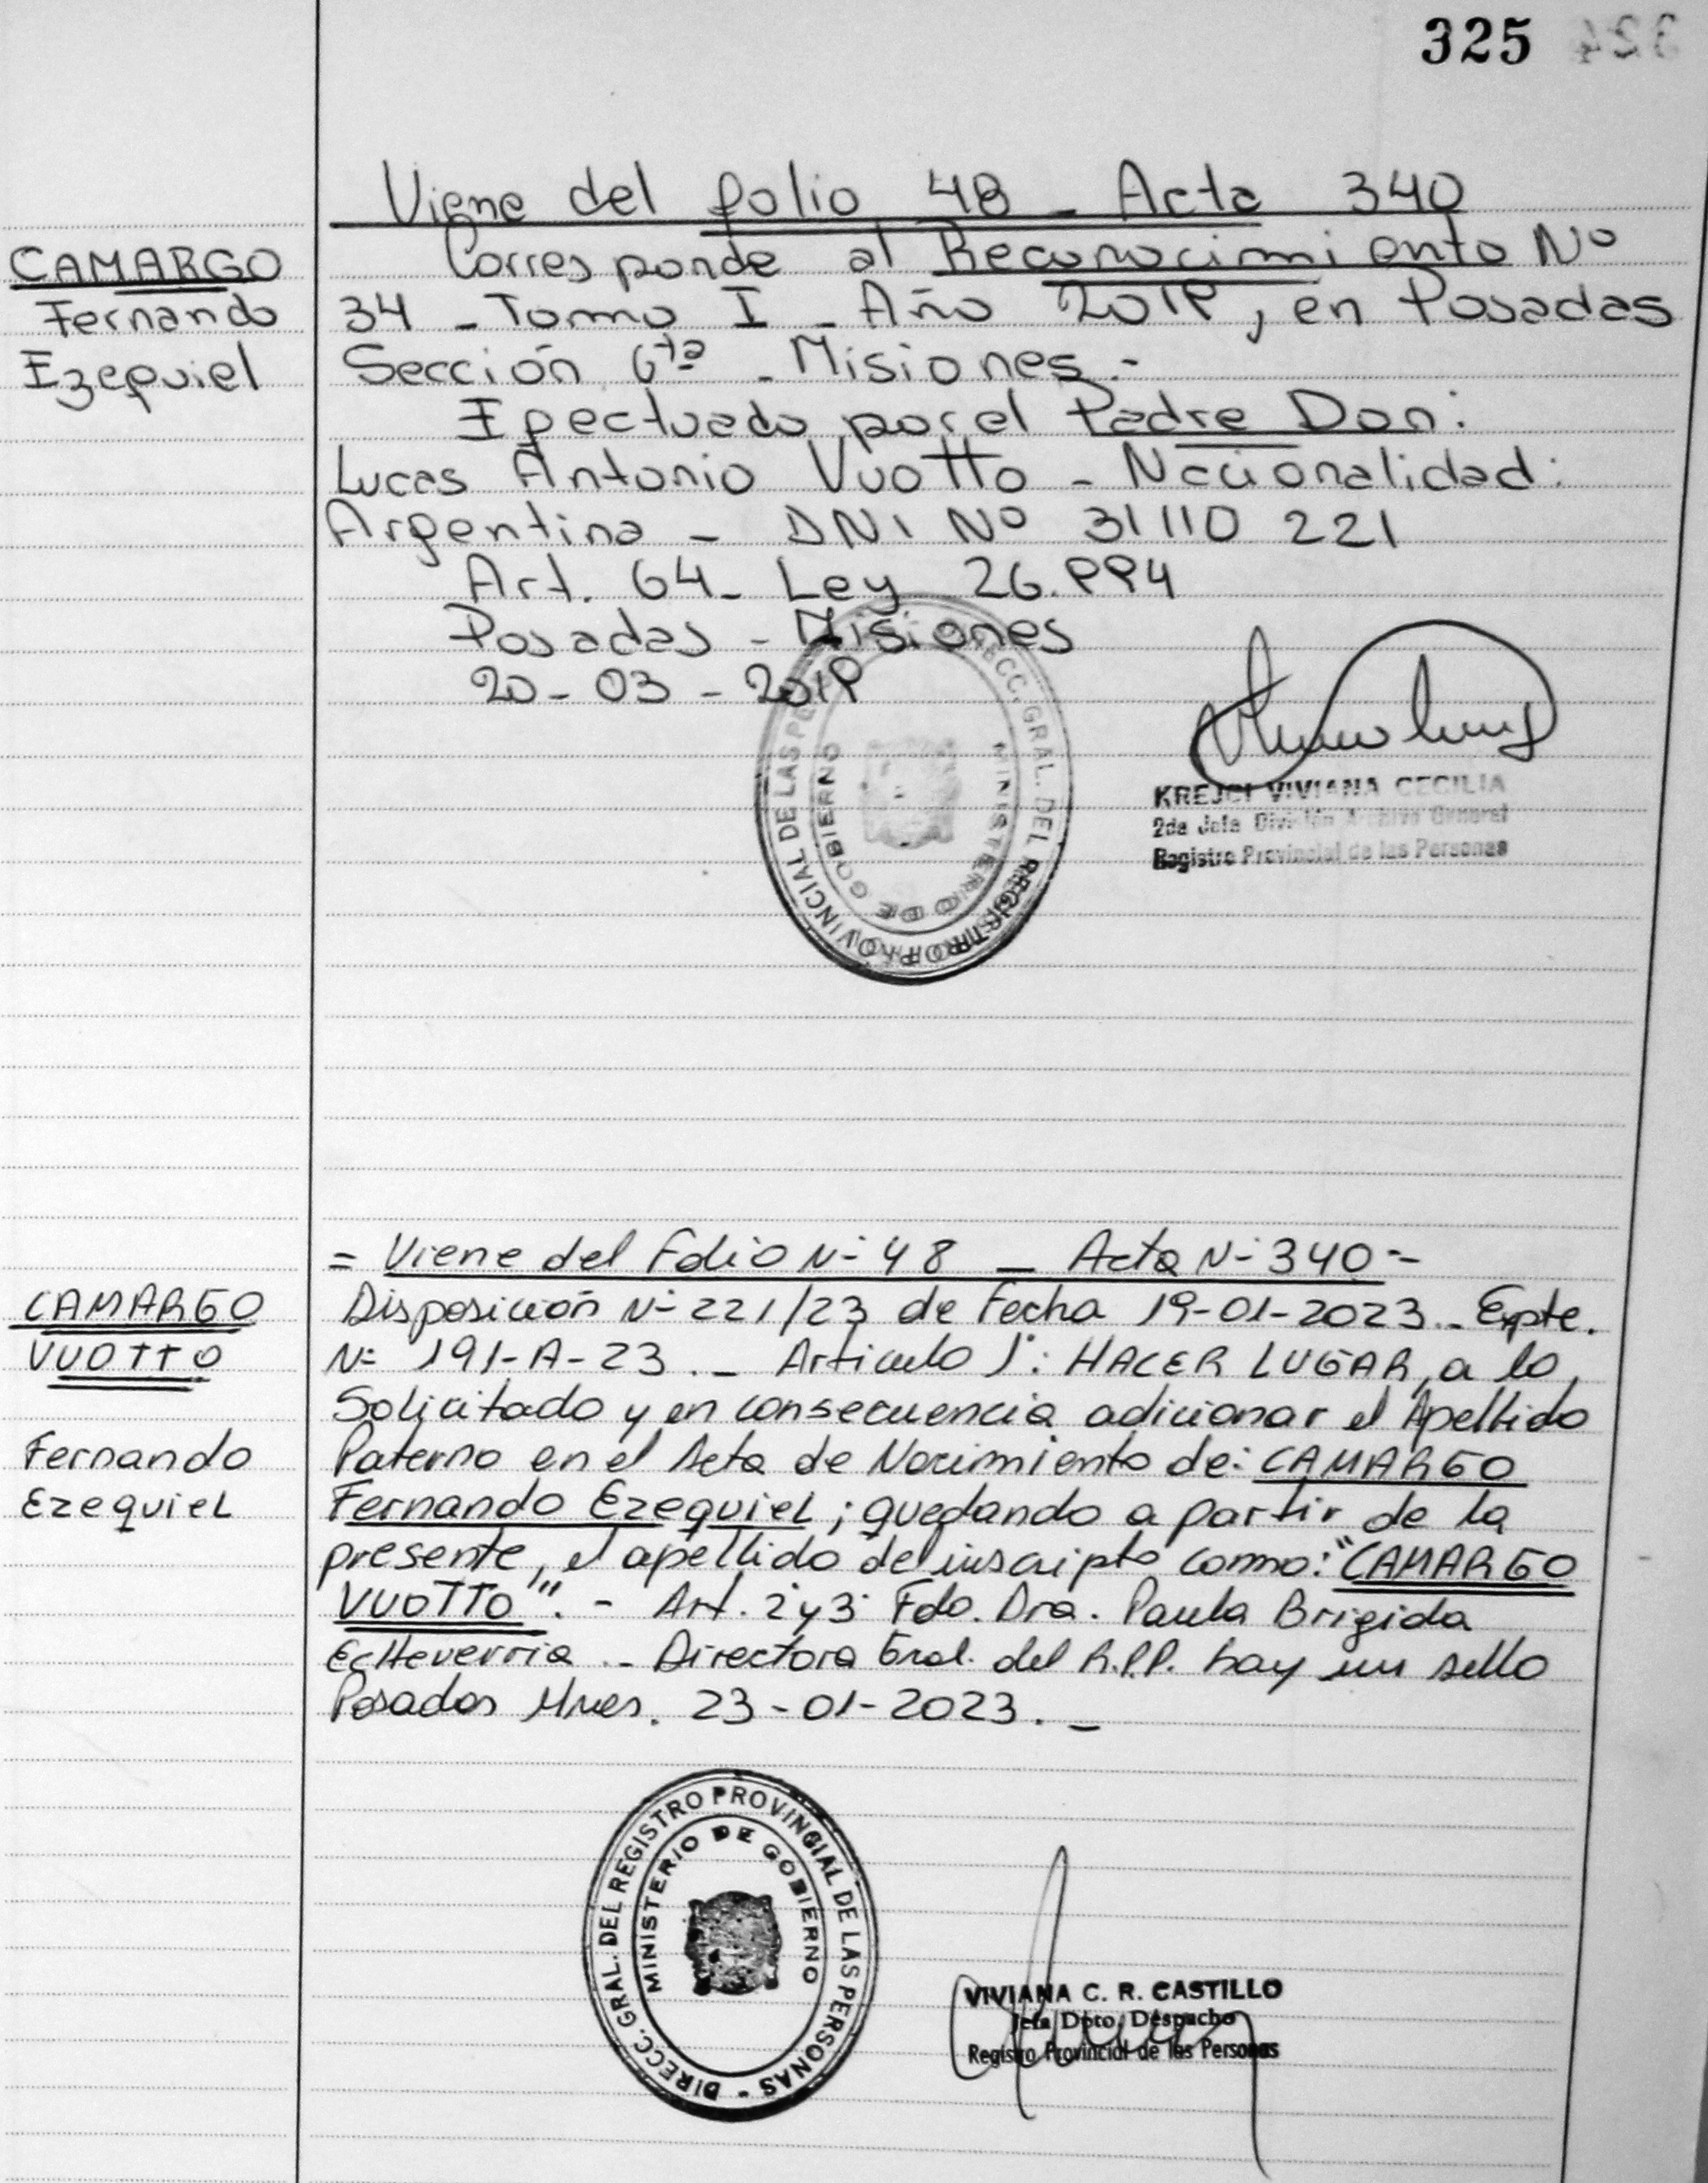 325
Viene del folio 48 - Acta 340
CAMARGO
Fernando
Ezequiel
Corresponde al Reconocimiento Nº
34 - Tomo I - Año 2019, en Posadas
Sección 6ta - Misiones.-
Efectuado por el Padre Don:
Lucas Antonio Vuotto - Nacionalidad:
Argentina - DNI Nº 31110 221
Art. 64 - Ley 26.994
Posadas - Misiones
20 - 03 - 2019
DIRECC. GRAL. DEL REGISTRO PROVINCIAL DE LAS PERSONAS
MINISTERIO DE GOBIERNO
KREJCI VIVIANA CECILIA
2da Jefa División Archivo General
Registro Provincial de las Personas
= Viene del Folio Nº 48 - Acta Nº 340 -
CAMARGO
VUOTTO
Fernando
Ezequiel
Disposición Nº 221/23 de Fecha 19-01-2023.- Expte.
Nº 191-A-23.- Articulo 1º: HACER LUGAR, a lo
Solicitado y en consecuencia adicionar el Apellido
Paterno en el Acta de Nacimiento de: CAMARGO
Fernando Ezequiel; quedando a partir de la
presente, el apellido del inscripto como: "CAMARGO
VUOTTO". - Art. 2º y 3º Fdo. Dra. Paula Brigida
Echeverria.- Directora Gral. del R.P.P. hay un sello
Posadas Mnes. 23-01-2023.-
DIRECC. GRAL. DEL REGISTRO PROVINCIAL DE LAS PERSONAS -
MINISTERIO DE GOBIERNO
VIVIANA C. R. CASTILLO
Jefa Dpto. Despacho
Registro Provincial de las Personas